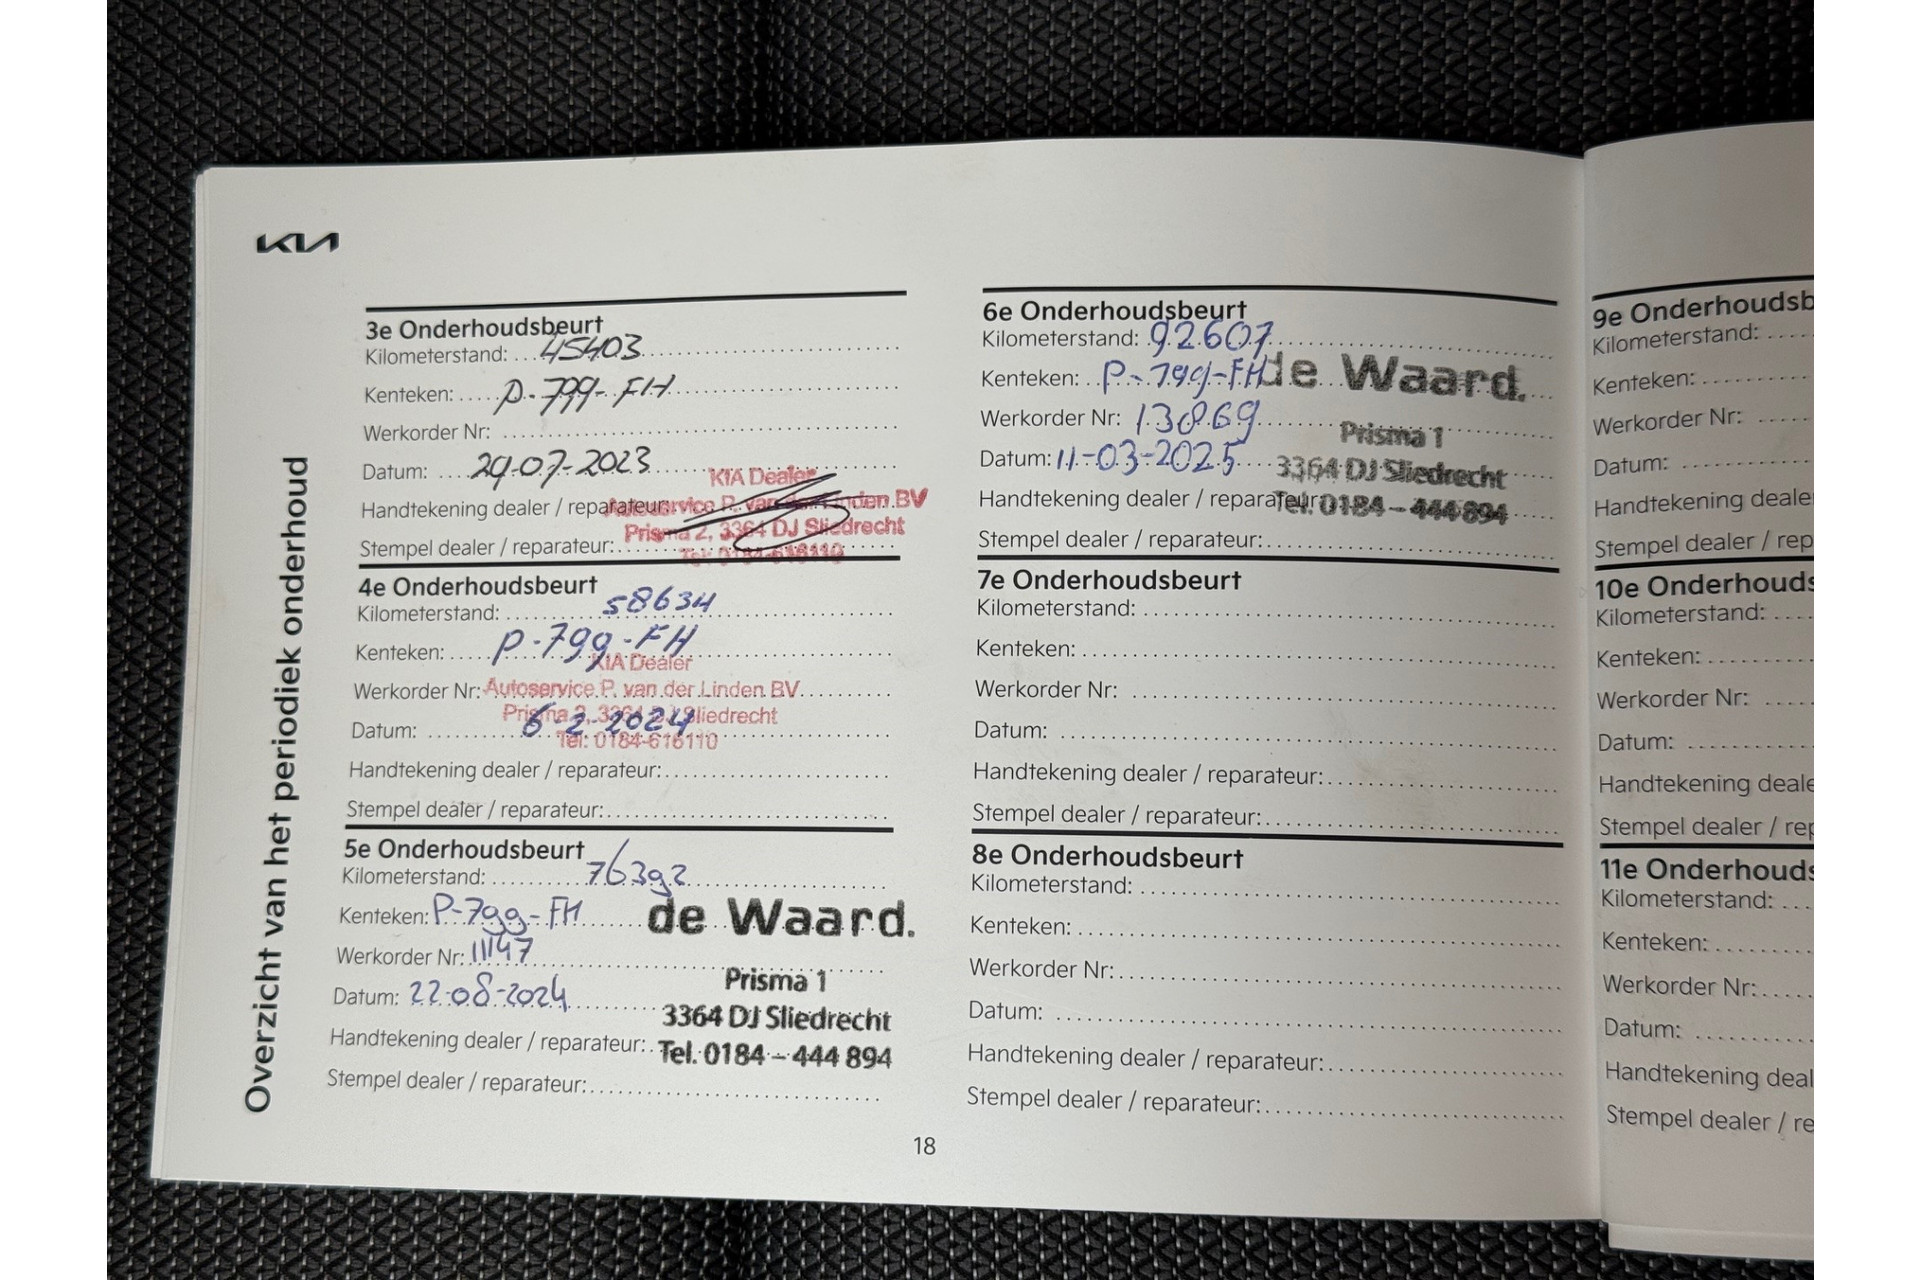 KIA
Overzicht van het periodiek onderhoud
3e Onderhoudsbeurt
Kilometerstand: 45403
Kenteken: P-799-FH
Werkorder Nr:
Datum: 29-07-2023
Handtekening dealer / reparateur:
Stempel dealer / reparateur:
KIA Dealer
Autoservice P. van der Linden BV
Prisma 2, 3364 DJ Sliedrecht
Tel: 0184-616110
4e Onderhoudsbeurt
Kilometerstand: 58634
Kenteken: P-799-FH
Werkorder Nr:
Datum: 6-2-2024
Handtekening dealer / reparateur:
Stempel dealer / reparateur:
KIA Dealer
Autoservice P. van der Linden BV
Prisma 2, 3364 DJ Sliedrecht
Tel: 0184-616110
5e Onderhoudsbeurt
Kilometerstand: 76392
Kenteken: P-799-FH
Werkorder Nr: 11147
Datum: 22-08-2024
Handtekening dealer / reparateur:
Stempel dealer / reparateur:
de Waard.
Prisma 1
3364 DJ Sliedrecht
Tel. 0184 - 444 894
6e Onderhoudsbeurt
Kilometerstand: 92607
Kenteken: P-799-FH
Werkorder Nr: 13869
Datum: 11-03-2025
Handtekening dealer / reparateur:
Stempel dealer / reparateur:
de Waard.
Prisma 1
3364 DJ Sliedrecht
Tel. 0184 - 444 894
7e Onderhoudsbeurt
Kilometerstand:
Kenteken:
Werkorder Nr:
Datum:
Handtekening dealer / reparateur:
Stempel dealer / reparateur:
8e Onderhoudsbeurt
Kilometerstand:
Kenteken:
Werkorder Nr:
Datum:
Handtekening dealer / reparateur:
Stempel dealer / reparateur:
18
9e Onderhoudsb
Kilometerstand:
Kenteken:
Werkorder Nr:
Datum:
Handtekening deale
Stempel dealer / rep
10e Onderhouds
Kilometerstand:
Kenteken:
Werkorder Nr:
Datum:
Handtekening deale
Stempel dealer / rep
11e Onderhouds
Kilometerstand:
Kenteken:
Werkorder Nr:
Datum:
Handtekening deal
Stempel dealer / re